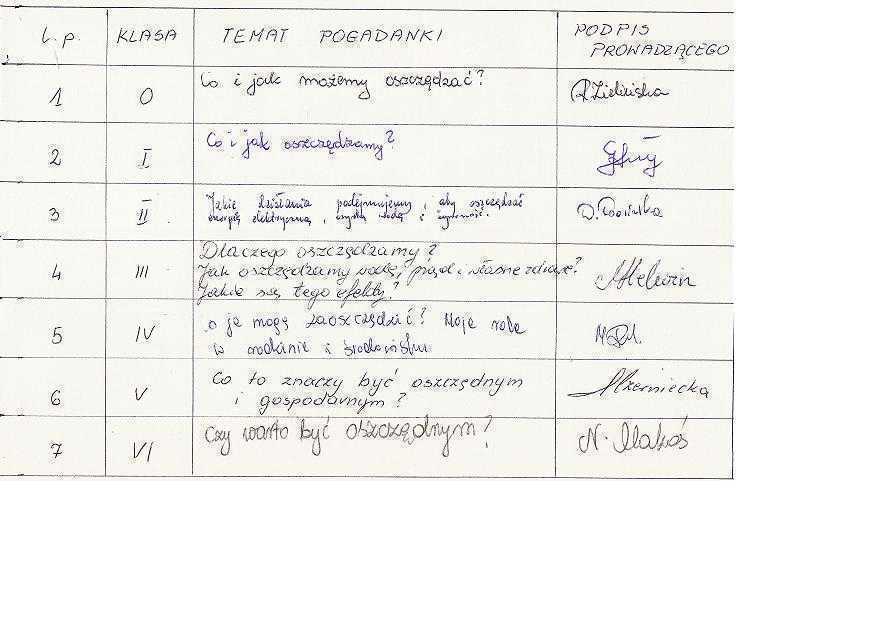 L.p. KLASA TEMAT POGADANKI PODPIS
PROWADZĄCEGO
1 0 Co i jak możemy oszczędzać? R Zielińska
2 I Co i jak oszczędzamy?
3 II Jakie działania podejmujemy, aby oszczędzać
energię elektryczną, czystą wodę i żywność. D.
Dlaczego oszczędzamy?
4 III Jak oszczędzamy wodę, prąd i własne zdrowie?
Jakie są tego efekty?
5 IV o ja mogę zaoszczędzić? Moja rola
w rodzinie i środowisku
6 V Co to znaczy być oszczędnym
i gospodarnym?
7 VI Czy warto być oszczędnym? N.